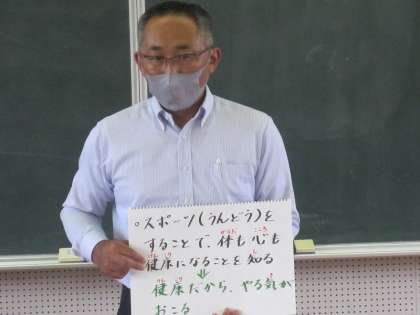 ○スポーツ(うんどう)を
することで、体も心も
健康になることを知る
⇓
健康だから、やる気が
おこる